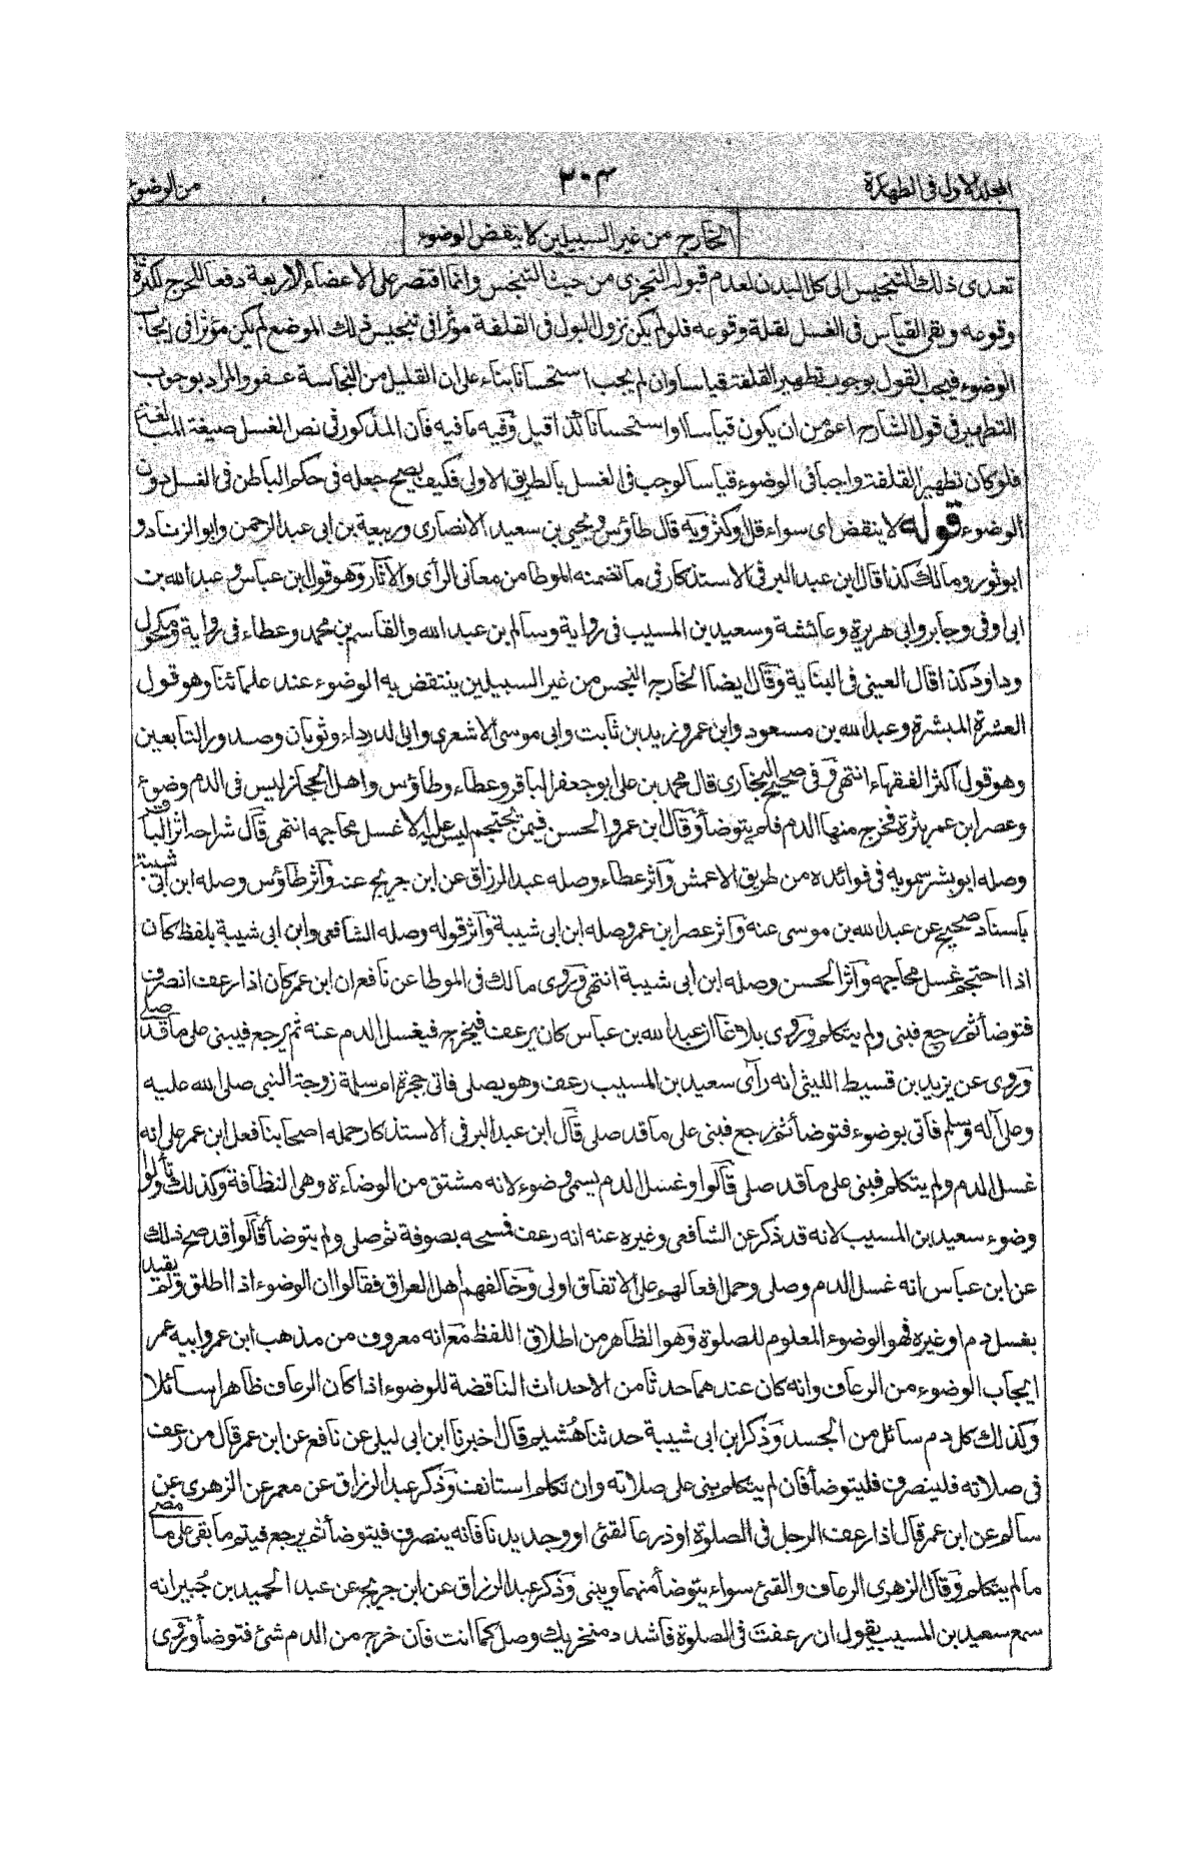 المجلد الاول فى الطهارة ٢٠٣ من الوضوء
الخارج من غير السبيلين لا ينقض الوضوء
تعدى ذلك التنجيس الى كل البدن لعدم قبوله التجزى من حيث التنجس وانما اقتصر على الاعضاء الاربعة دفعا للحرج لكثرة
وقوعه وبقى القياس فى الغسل لقلة وقوعه فلولم يكن نزول البول فى القلفة مؤثرا فى تنجيس ذلك الموضع لم يكن مؤثرا فى ايجاب
الوضوء فيجب القول بوجوب تطهير القلفة قياسا وان لم يجب استحسانا بناء على ان القليل من النجاسة عفو والمراد بوجوب
التطهير فى قول الشارح اعم من ان يكون قياسا او استحسانا كذا قيل وفيه ما فيه فان المذكور فى نص الغسل صيغة المبالغة
فلو كان تطهير القلفة واجبا فى الوضوء قياسا لوجب فى الغسل بالطريق الاولى فكيف يصح جعله فى حكم الباطن فى الغسل دون
الوضوء قوله لا ينقض اى سواء قل او كثر وبه قال طاؤس ويحيى بن سعيد الانصارى وربيعة بن ابى عبد الرحمن وابو الزناد و
ابو ثور ومالك كذا قال ابن عبد البر فى الاستذكار فى ما تضمنه الموطا من معانى الرأى والاثار وهو قول ابن عباس وعبد الله بن
ابى اوفى وجابر وابى هريرة وعائشة وسعيد بن المسيب فى رواية وسالم بن عبد الله والقاسم بن محمد وعطاء فى رواية ومكحول
وداود كذا قال العينى فى البناية وقال ايضا الخارج النجس من غير السبيلين ينتقض به الوضوء عند علمائنا وهو قول
العشرة المبشرة وعبد الله بن مسعود وابن عمر وزيد بن ثابت وابى موسى الاشعرى وابى الدرداء وثوبان وصدور التابعين
وهو قول اكثر الفقهاء انتهى وفى صحيح البخارى قال محمد بن على ابو جعفر الباقر وعطاء وطاؤس واهل الحجاز ليس فى الدم وضوء
وعصر ابن عمر بثرة فخرج منها الدم فلم يتوضأ وقال ابن عمر والحسن فيمن يحتجم ليس عليه الا غسل محاجمه انتهى قال شراحه اثر الباقر
وصله ابو بشر سمويه فى فوائده من طريق الاعمش واثر عطاء وصله عبد الرزاق عن ابن جريج عنه واثر طاؤس وصله ابن ابى شيبة
باسناد صحيح عن عبد الله بن موسى عنه واثر عصر ابن عمر وصله ابن ابى شيبة واثر قوله وصله الشافعى وابن ابى شيبة بلفظ كان
اذا احتجم غسل محاجمه واثر الحسن وصله ابن ابى شيبة انتهى وروى مالك فى الموطا عن نافع ان ابن عمر كان اذا رعف انصرف
فتوضأ ثم رجع فبنى ولم يتكلم وروى بلاغا ان عبد الله بن عباس كان يرعف فيخرج فيغسل الدم عنه ثم يرجع فيبنى على ما قد صلى
وروى عن يزيد بن قسيط الليثى انه رأى سعيد بن المسيب رعف وهو يصلى فاتى حجرة ام سلمة زوجة النبى صلى الله عليه
وعلى آله وسلم فاتى بوضوء فتوضأ ثم رجع فبنى على ما قد صلى قال ابن عبد البر فى الاستذكار حمله اصحابنا فعل ابن عمر على انه
غسل الدم ولم يتكلم فبنى على ما قد صلى قالوا وغسل الدم يسمى وضوء لانه مشتق من الوضاءة وهى النظافة وكذلك تأولوا
وضوء سعيد بن المسيب لانه قد ذكر عن الشافعى وغيره عنه انه رعف فمسحه بصوفة ثم صلى ولم يتوضأ قالوا قد صح ذلك
عن ابن عباس انه غسل الدم وصلى وحمل افعالهم على الاتفاق اولى وخالفهم اهل العراق فقالوا ان الوضوء اذا اطلق ولم يقيد
بغسل دم او غيره فهو الوضوء المعلوم للصلوة وهو الظاهر من اطلاق اللفظ مع انه معروف من مذهب ابن عمر وابيه عمر
ايجاب الوضوء من الرعاف وانه كان عندهما حدثا من الاحداث الناقضة للوضوء اذا كان الرعاف ظاهرا سائلا
وكذلك كل دم سائل من الجسد وذكر ابن ابى شيبة حدثنا هُشيم قال اخبرنا ابن ابى ليلى عن نافع عن ابن عمر قال من رعف
فى صلاته فلينصرف فليتوضأ فان لم يتكلم بنى على صلاته وان تكلم استانف وذكر عبد الرزاق عن معمر عن الزهرى عن
سالم عن ابن عمر قال اذا رعف الرجل فى الصلوة او ذرعه القئ او وجد يذيا فانه ينصرف فيتوضأ ثم يرجع فيتم ما بقى على ما مضى
ما لم يتكلم وقال الزهرى الرعاف والقئ سواء يتوضأ منهما ويبنى وذكر عبد الرزاق عن ابن جريج عن عبد الحميد بن جُبير انه
سمع سعيد بن المسيب يقول ان رعفت فى الصلوة فاشدد منخريك وصل كما انت فان خرج من الدم شئ فتوضأ وروى